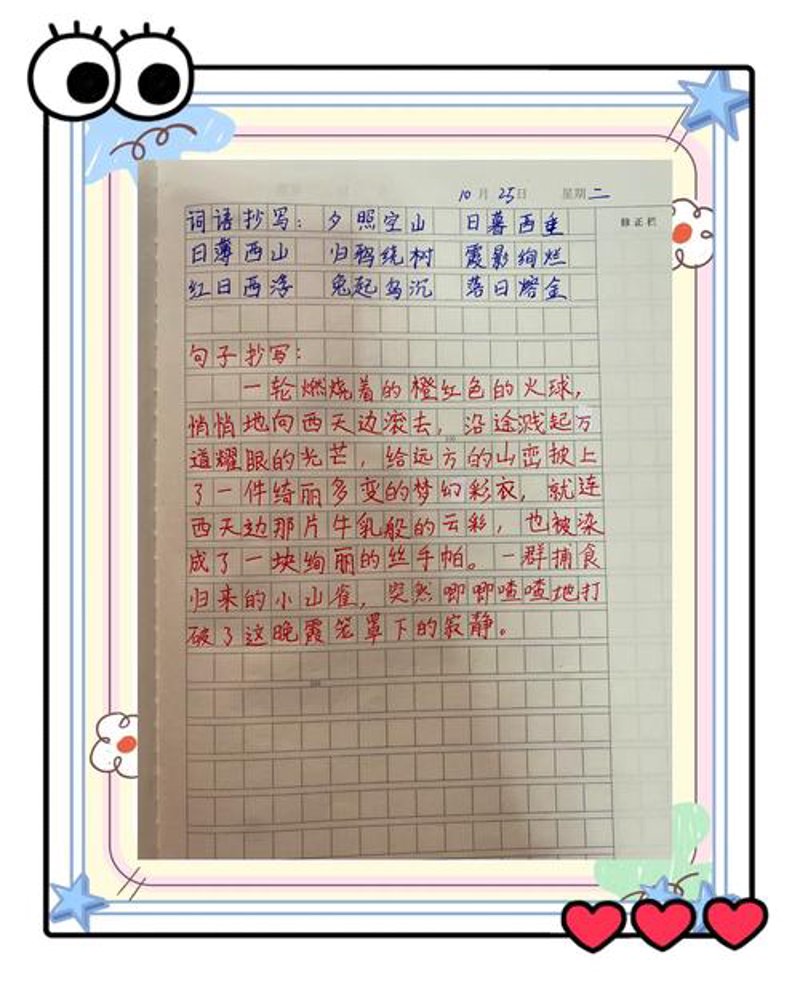 10月25日 星期二
词语抄写：夕照空山 日暮西垂
修正栏
日薄西山 归鸦绕树 霞影绚烂
红日西浮 兔起乌沉 落日熔金
句子抄写：
一轮燃烧着的橙红色的火球，
悄悄地向西天边滚去，沿途溅起万
道耀眼的光芒，给远方的山峦披上
了一件绮丽多变的梦幻彩衣，就连
西天边那片牛乳般的云彩，也被染
成了一块绚丽的丝手帕。一群捕食
归来的小山雀，突然唧唧喳喳地打
破了这晚霞笼罩下的寂静。